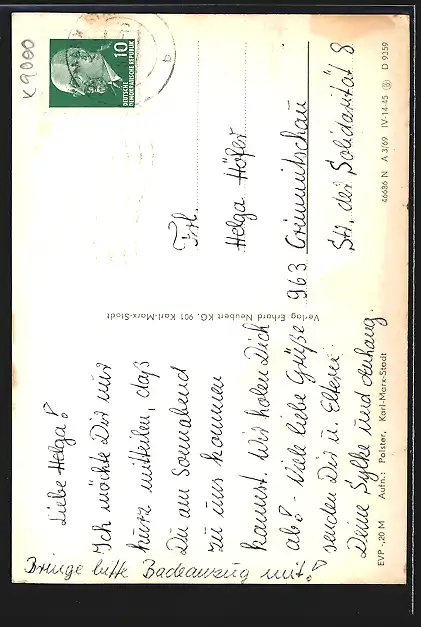 Liebe Helga!
Ich möchte Dir nur
kurz mitteilen, daß
Du am Sonnabend
zu uns kommen
kannst. Wir holen Dich
ab! - Viele liebe Grüße
senden Dir u. Eltern
Deine Sylke und Anhang.
Bringe bitte Badeanzug mit!
EVP -,20 M Aufn.: Polster, Karl-Marx-Stadt
Verlag Erhard Neubert KG, 901 Karl-Marx-Stadt
K9000
10
DEUTSCHE
DEMOKRATISCHE REPUBLIK
b
Frl.
Helga Höfer
963 Crimmitschau
Str. der Solidarität 8
46686 N A 3/69 IV-14-45 D 9359